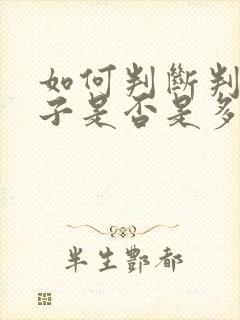 如何判斷判
子是否是多
半生酆都